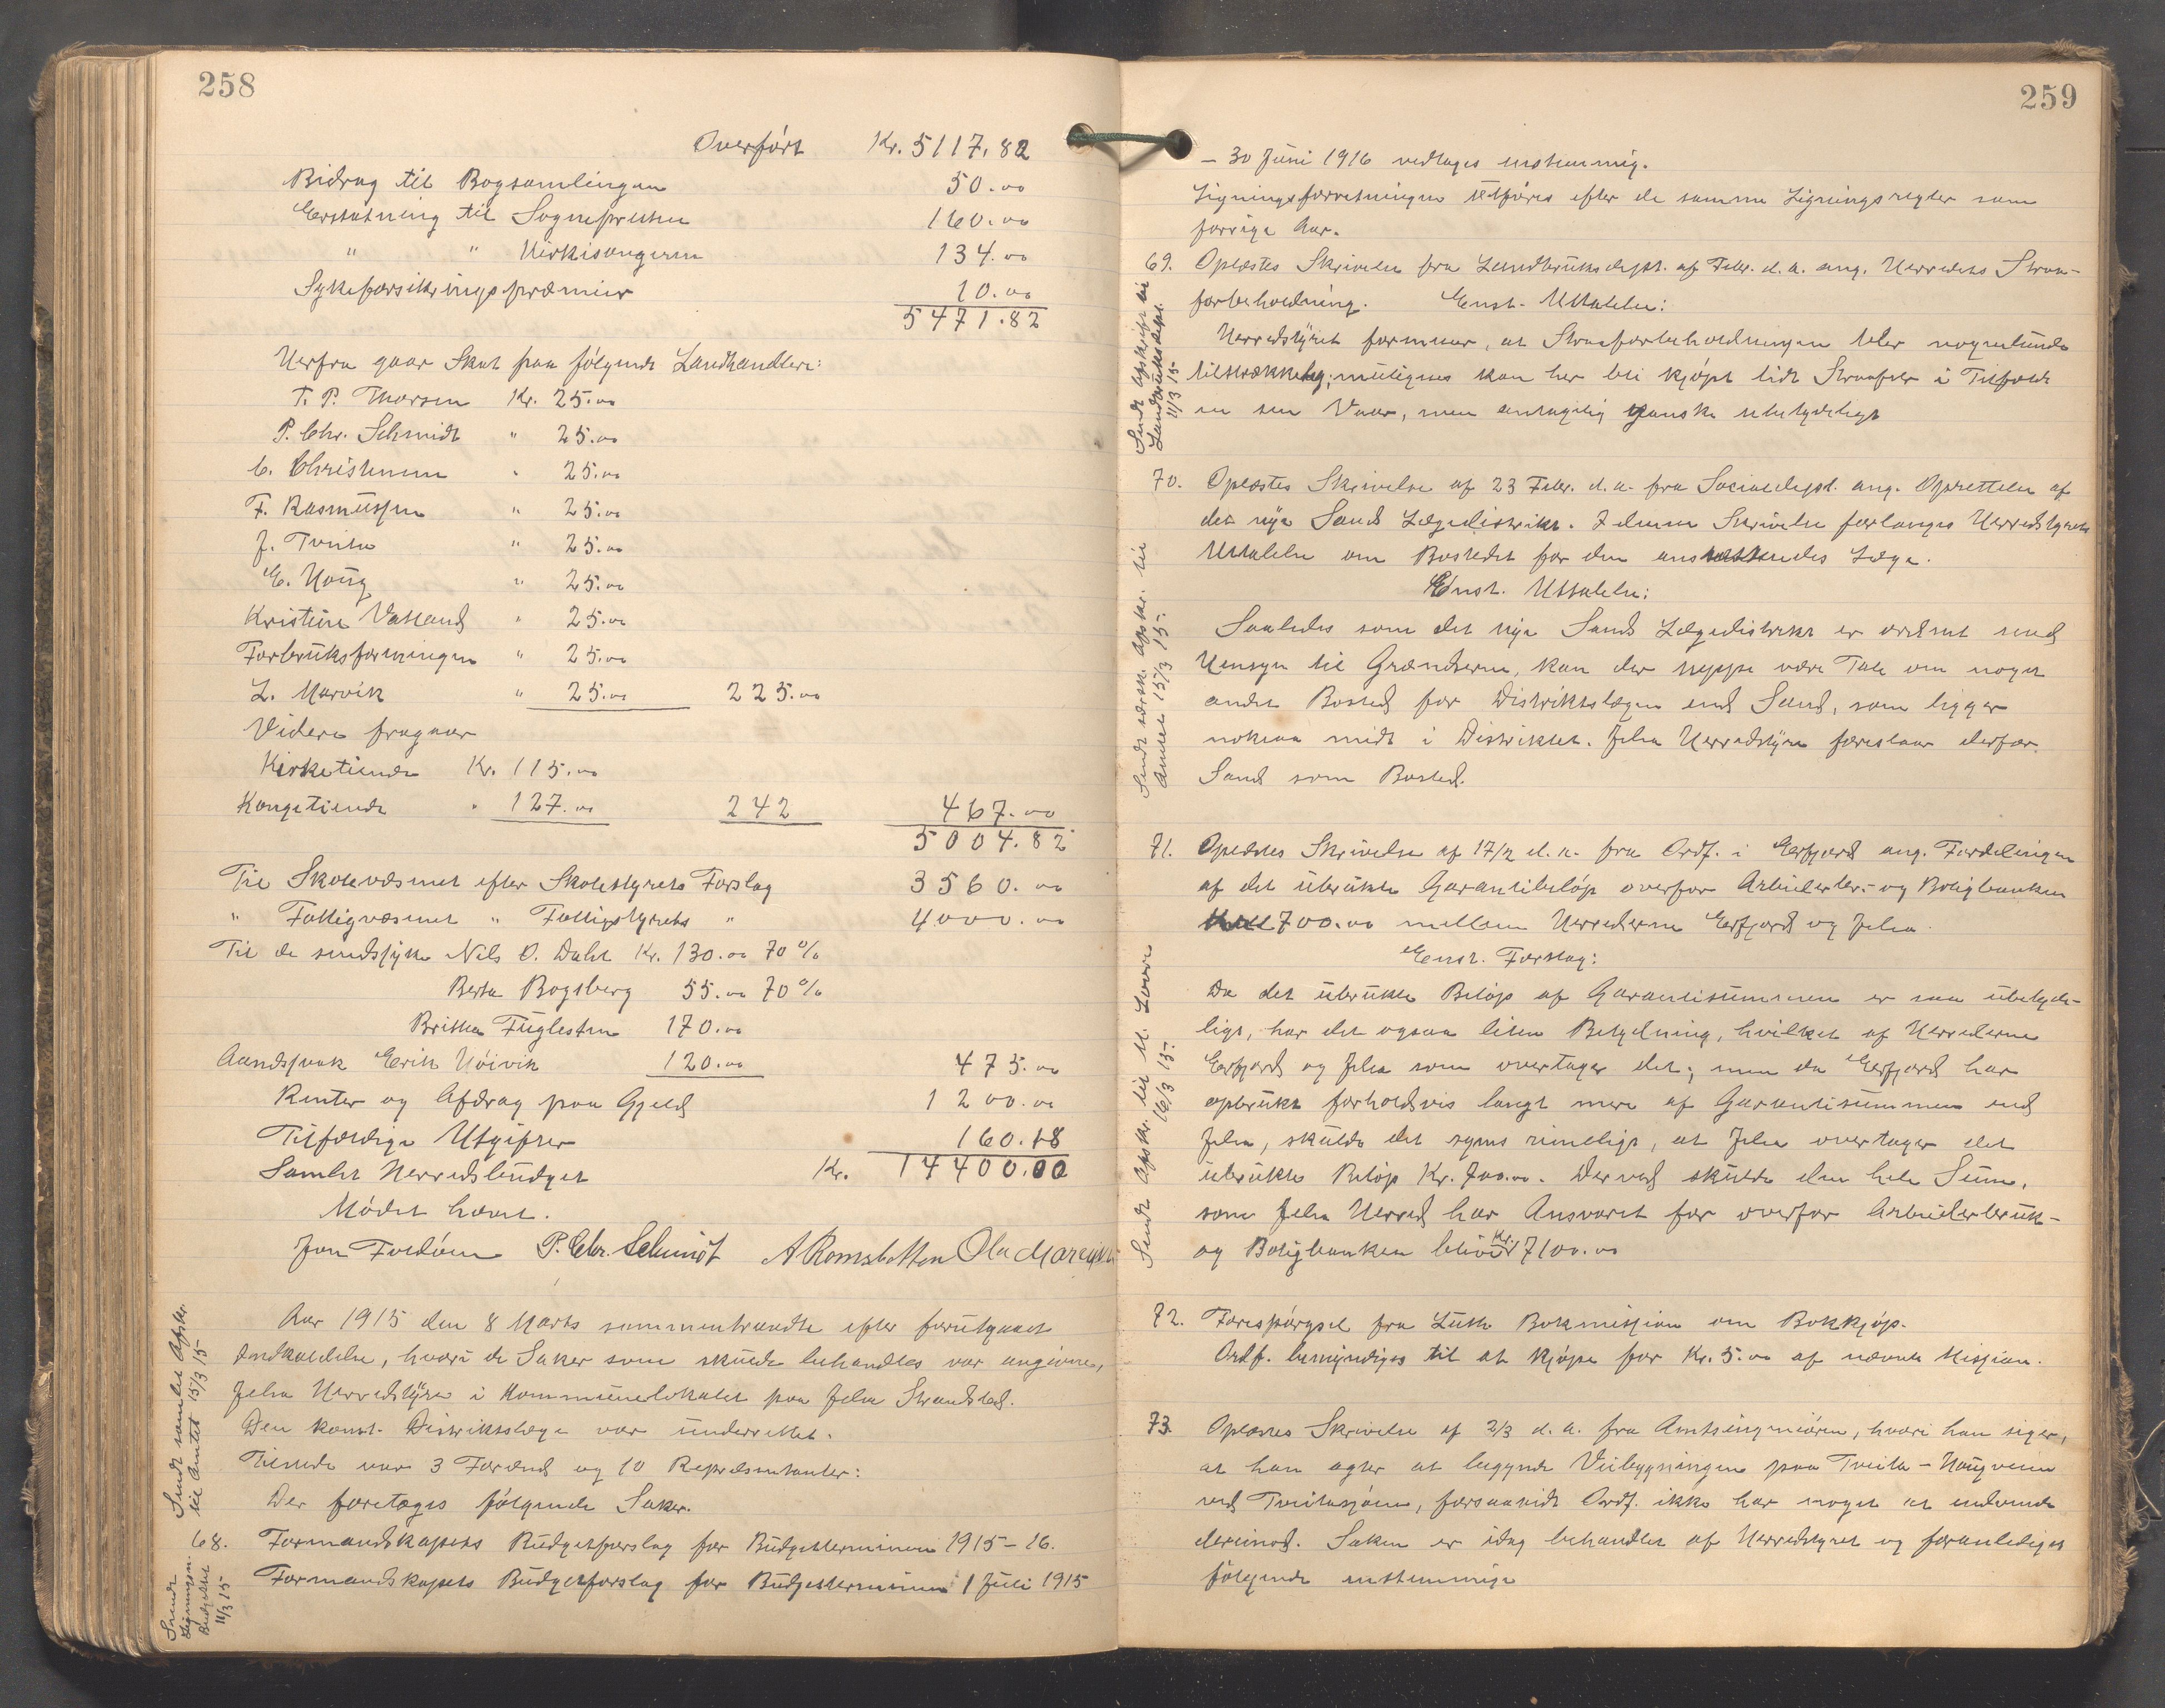 258
Overført Kr. 5117.82
Bidrag til Bogsamlingen 50.00
Erstatning til Sognepresten 160.00
" " Kirkesangeren 134.00
Sykeforsikringspræmier 10.00
5471.82
Herfra gaar Skat paa følgende Landhandlere:
T. P. Thorsen Kr. 25.00
P. Chr. Schmidt " 25.00
C. Christensen " 25.00
F. Rasmussen " 25.00
J. Tveita " 25.00
E. Houg " 25.00
Kristine Vatland " 25.00
Forbruksforeningen " 25.00
L. Marvik " 25.00 225.00
Videre fragaar
Kirketiende Kr. 115.00
Kongetiende " 127.00 242 467.00
5004.82
Til Skolevæsenet efter Skolestyrets Forslag 3560.00
" Fattigvæsenet " Fattigstyrets " 4000.00
Til de sindssyke Nils O. Dahl Kr. 130.00 70%
Berta Bogsberg 55.00 70%
Brithe Fuglesten 170.00
Aandssvak Erik Høivik 120.00 475.00
Renter og Afdrag paa Gjeld 1200.00
Tilfældige Utgifter 160.18
Samlet Herredsbudget Kr. 14400.00
Mødet hævet.
Jon Foldøen P. Chr. Schmidt A Ramsbotten Ola Marvik
Aar 1915 den 8 Marts sammentraadte efter forutgaaet
Indkaldelse, hvori de Saker som skulde behandles var angivne,
Jelsa Herredstyre i Kommunelokalet paa Jelsa Strandsted.
Den konst. Distriktslæge var underrettet.
Tilstede var 3 Formænd og 10 Repræsentanter:
Der foretoges følgende Saker.
Sendt samlet Afskr.
til Amtet 15/3 15
68. Formandskapets Budgetforslag for Budgetterminen 1915-16.
Formandskapets Budgetforslag for Budgetterminen 1 Juli 1915
Sendt
Ligningsn.
Budgettet
11/3 15
259
- 30 Juni 1916 vedtages enstemmig.
Ligningsforretningen utføres efter de samme Ligningsregler som
forrige Aar.
69. Oplæstes Skrivelse fra Landbruksdept. af Febr. d.a. ang. Herredets Straa-
forbeholdning. Enst. Uttalelse:
Herredstyret formener, at Straaforbeholdningen blir nogenlunde
tilstrækkelig; muligens kan her bli kjøpt lidt Straafor i Tilfælde
en sen Vaar, men antagelig ganske ubetydeligt
Sendt Afskrift til
Landbruksdept.
11/3 15
70. Oplæstes Skrivelse af 23 Febr. d.a. fra Socialdept. ang. Oprettelse af
det nye Sands Lægedistrikt. I denne Skrivelse forlanges Herredstyrets
Uttalelse om Bostedet for den ansættendes Læge.
Enst. Uttalelse:
Saaledes som det nye Sands Lægedistrikt er ordnet med
Hensyn til Grændserne, kan der neppe være Tale om noget
andet Bosted for Distriktslægen end Sand, som ligger
noksaa midt i Distriktet. Jelsa Herredstyre foreslaar derfor
Sand som Bosted.
Sendt særsk. Afskr. til
Amtet 15/3 15.
71. Oplæstes Skrivelse af 17/2 d.a. fra Ordf. i Erfjord ang. Fordelingen
af det ubrukte Garantibeløp overfor Arbeiderbr.- og Boligbanken
700.00 mellem Herrederne Erfjord og Jelsa.
Enst. Forslag:
Da det ubrukte Beløp af Garantisummen er saa ubetyde-
ligt, har det ogsaa liten Betydning, hvilket af Herrederne
Erfjord og Jelsa som overtager det; men da Erfjord har
opbrukt forholdsvis langt mere af Garantisummen end
Jelsa, skulde det synes rimeligt, at Jelsa overtager det
ubrukte Beløp Kr. 700.00. Derved skulde den hele Sum,
som Jelsa Herred har Ansvaret for overfor Arbeiderbruk-
og Boligbanken blive Kr. 7100.00
Sendt Afskr. til
16/3 15.
72. Forespørgsel fra Luth. Bokmission om Bokkjøp.
Ordf. bemyndiges til at kjøpe for Kr. 5.00 af nævnte Mission.
73. Oplæstes Skrivelse af 2/3 d.a. fra Amtsingeniøren, hvori han siger,
at han agter at begynde Veibygningen paa Tveita-Hougveien
ved Tveitasjøen, forsaavidt Ordf. ikke har noget at indvende
derimod. Saken er idag behandlet af Herredstyret og foranlediget
følgende enstemmige